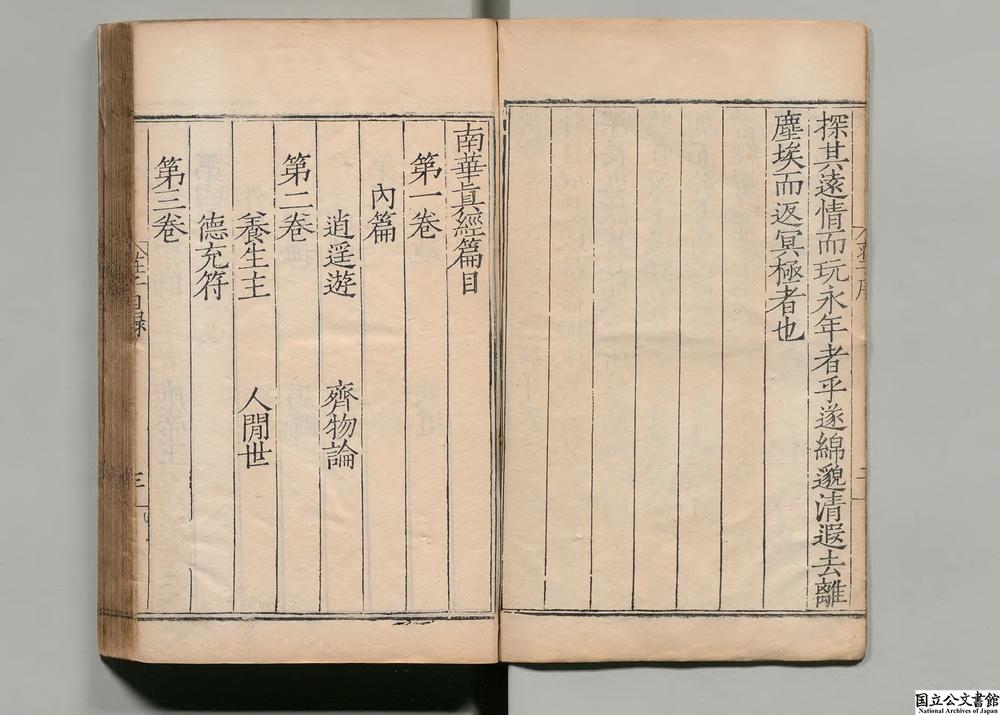 探其遠情而玩永年者乎遂綿邈清遐去離
塵埃而返冥極者也
南華眞經篇目
第一卷
內篇
逍遥遊 齊物論
第二卷
養生主 人閒世
德充符
第三卷
国立公文書館
National Archives of Japan